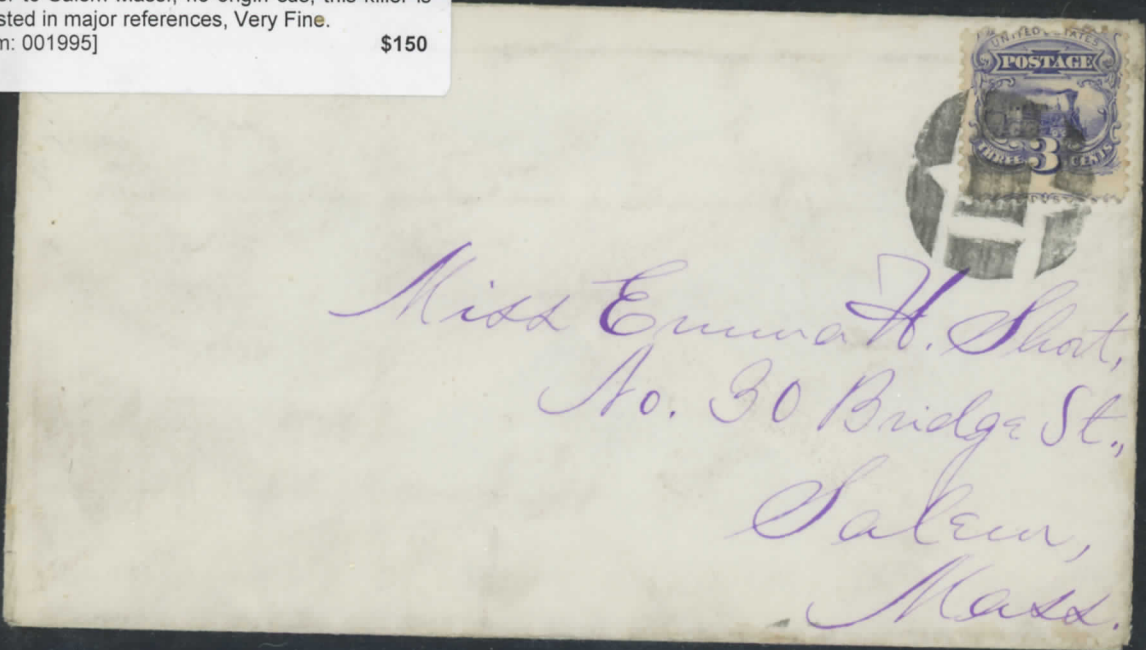 to Salem Mass., no origin cds, this killer is
sted in major references, Very Fine.
m: 001995] $150
UNITED STATES
POSTAGE
THREE 3 CENTS
Miss Emma H. Short,
No. 30 Bridge St.,
Salem,
Mass.